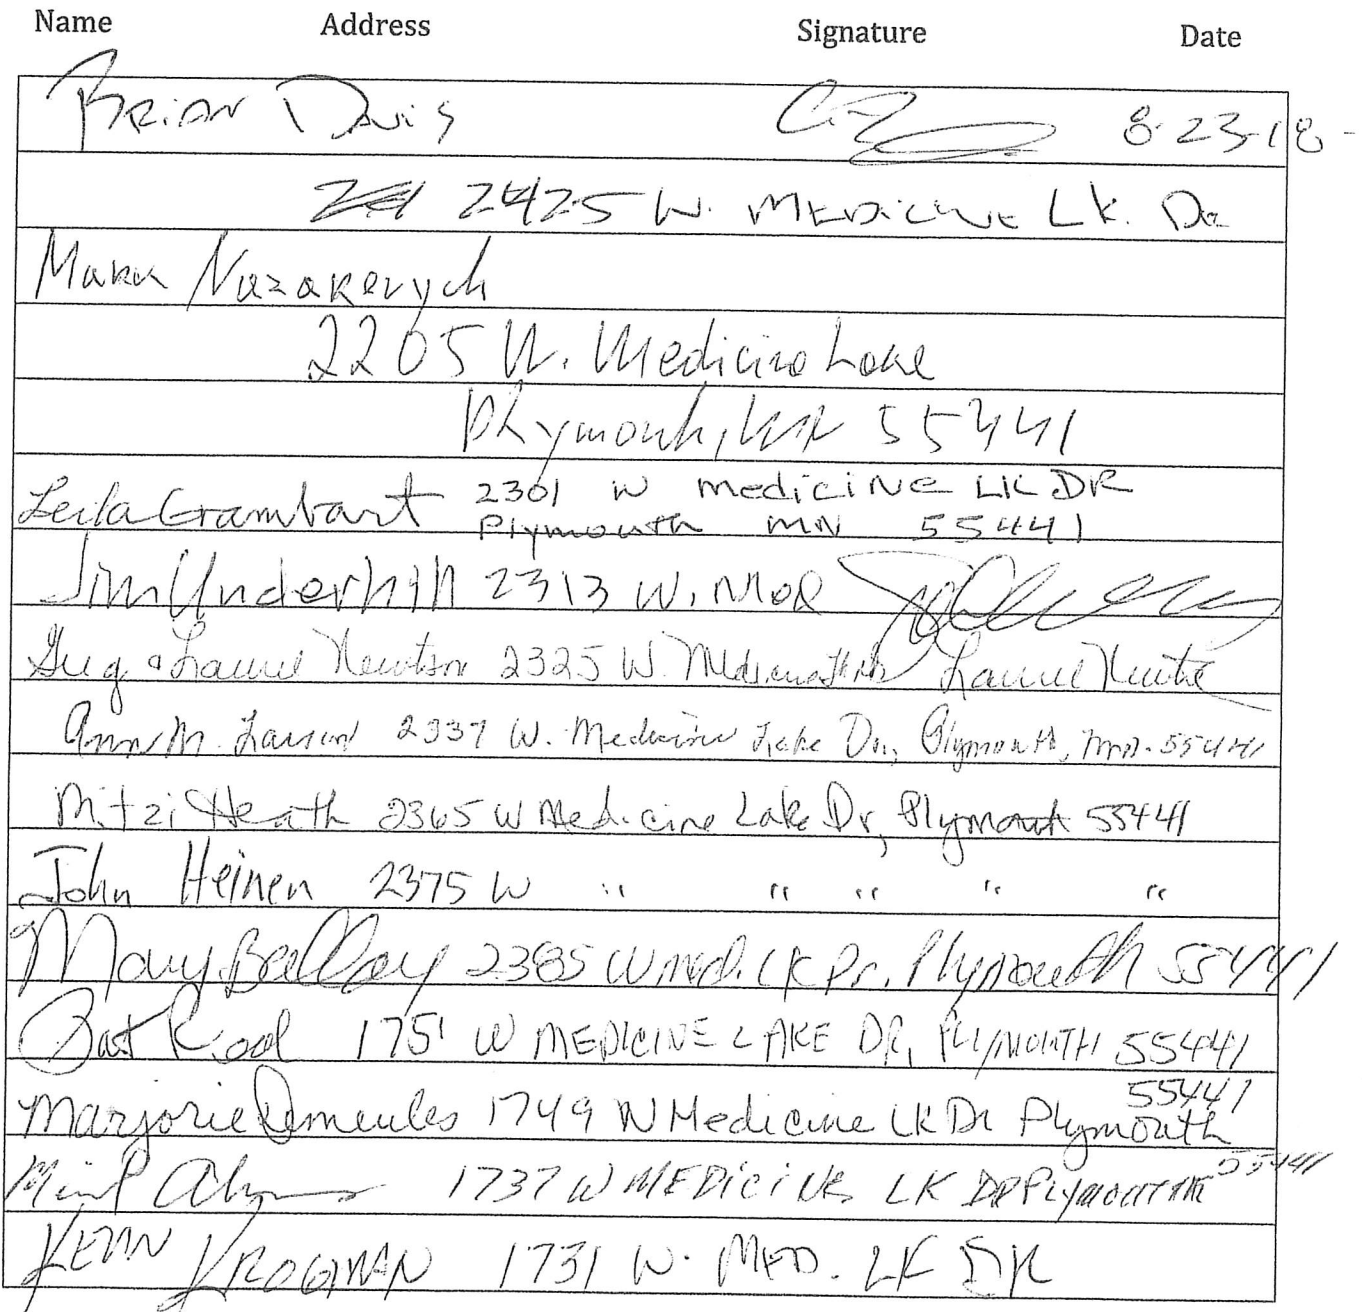 Name Address Signature Date
Brian Davis 8-23-18-
2425 W. Medicine Lk. Dr
Mark Nazarevych
2205 W. Medicine Lake
Plymouth, MN 55441
Leila Grambart 2301 W Medicine LK DR
Plymouth MN 55441
Jim Underhill 2313 W. Med
Greg & Laurie Newton 2325 W. Laurie Newton
Ann M. Larson 2337 W. Medicine Lake Dr., Plymouth, Mn. 55441
Mitzi Heath 2365 W Medicine Lake Dr, Plymouth 55441
John Heinen 2375 W " " " " "
Mary 2385 W Med. LK Dr. Plymouth 55441
Pat 1751 W MEDICINE LAKE DR, PLYMOUTH 55441
55441
Marjorie Demeules 1749 W Medicine LK Dr Plymouth
1737 W MEDICINE LK DR PLYMOUTH 55441
KEVIN KROGMAN 1731 W. MED. LK DR